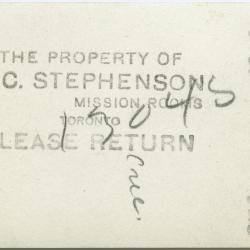 THE PROPERTY OF
C. STEPHENSON
MISSION ROOMS
TORONTO
LEASE RETURN
15045